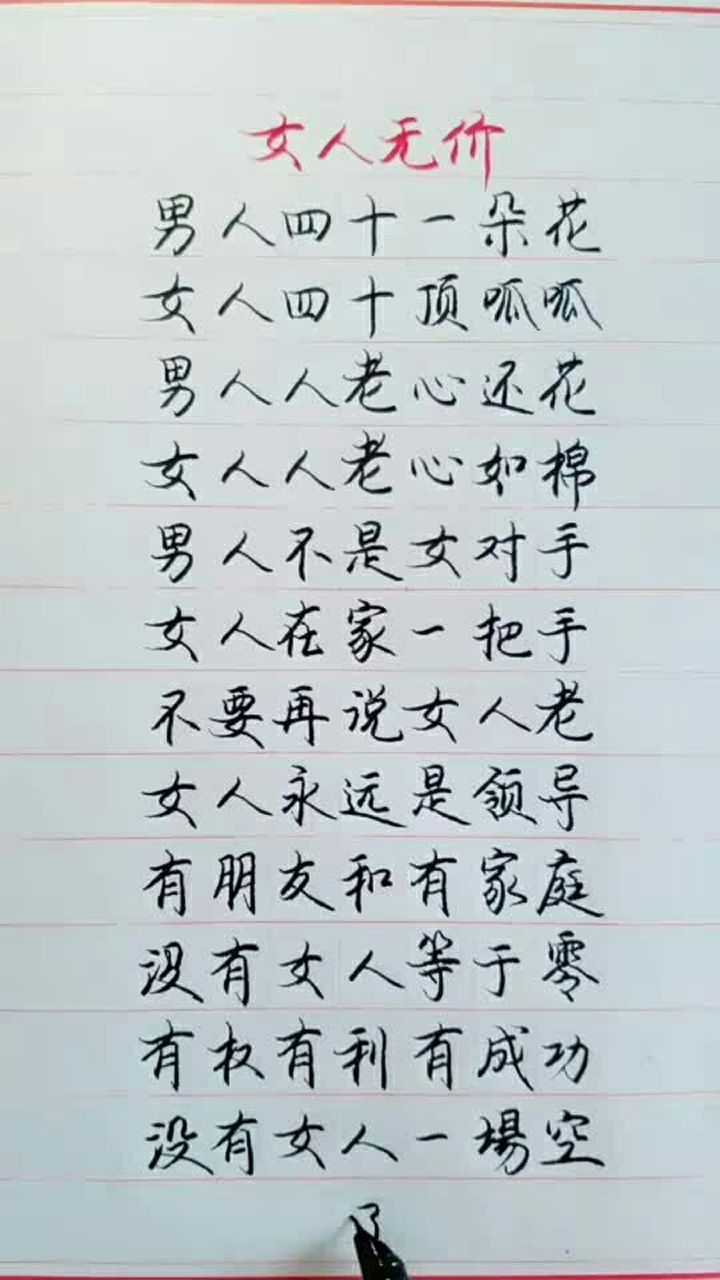 女人无价
男人四十一朵花
女人四十顶呱呱
男人人老心还花
女人人老心如棉
男人不是女对手
女人在家一把手
不要再说女人老
女人永远是领导
有朋友和有家庭
没有女人等于零
有权有利有成功
没有女人一場空